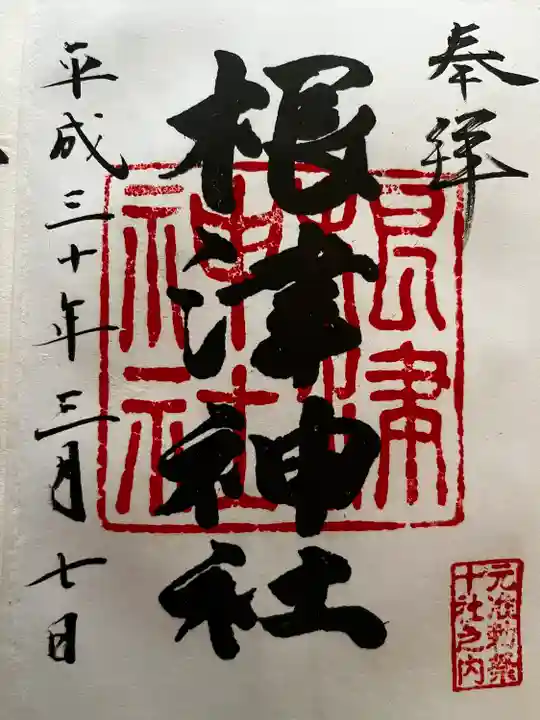 奉拝
根津神社
平成三十年三月七日
根津神社
元准勅祭
十社之内